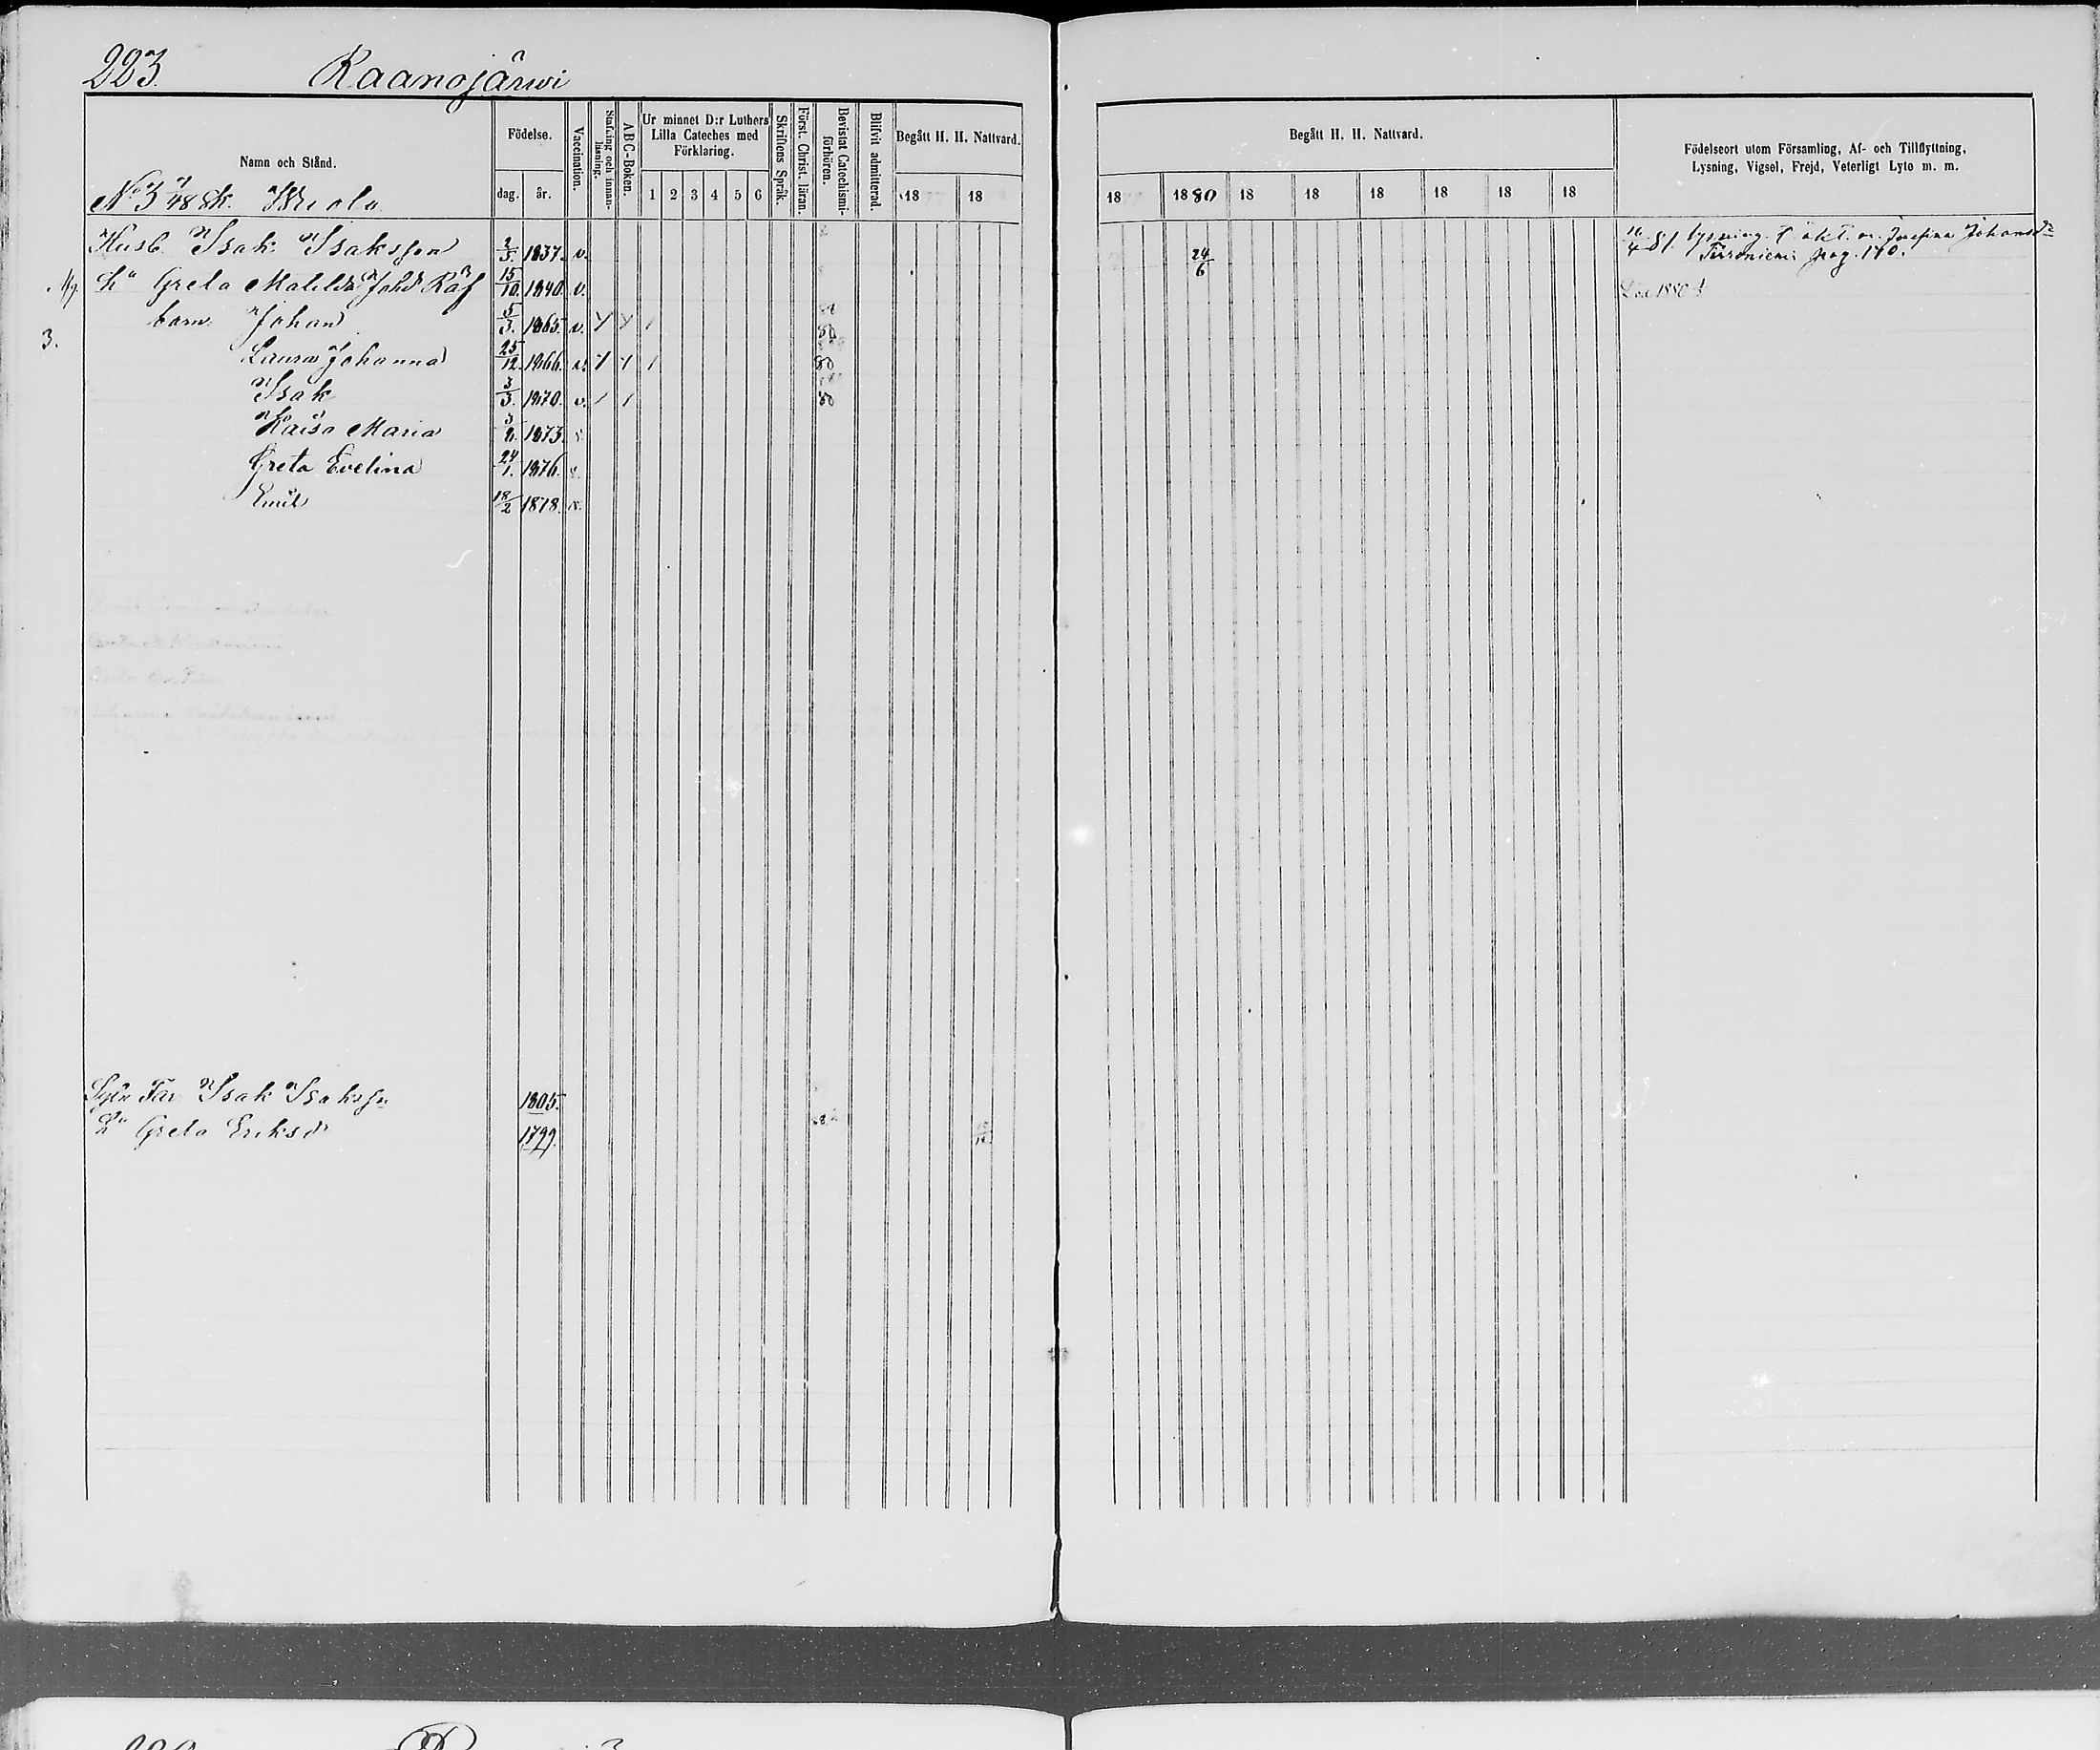 223.
Raanojärwi
Namn och Stånd.
Födelse.
dag.
år.
Vaccination.
Stafning och innanläsning.
ABC-Boken.
Ur minnet D:r Luthers Lilla Cateches med Förklaring.
1 2 3 4 5 6
Skriftens Språk.
Först. Christ. läran.
Bevistat Catechismiförhören.
Blifvit admitterad.
Begått H. H. Nattvard.
18 18
Begått H. H. Nattvard.
18 1880 18 18 18 18 18 18
Födelseort utom Församling, Af- och Tillflyttning,
Lysning, Vigsel, Frejd, Veterligt Lyto m. m.
No 3 7/48 sk.
Husb. Isak Isaksson 2/5. 1837. v. 24/6 /4 81 lysning t. äkt. m. Josefina Johansdr
pag. 170.
Hu Greta Matilda Johd Räf 15/10. 1840. v. 1880
barn Johan 5/3. 1865. v. 80
3.
Laura Johanna 25/12. 1866. v. 80
Isak 3/3. 1870. v. 80
Kaisa Maria 3/2. 1873. v.
Greta Evelina 24/1. 1876. v.
Emil 18/2 1878. v.
Far Isak Isakss 1805.
Hu Greta Eriksdr 1799.